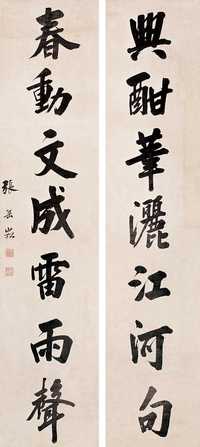 興酣筆灑江河句
春動文成雷雨聲
張岳崧